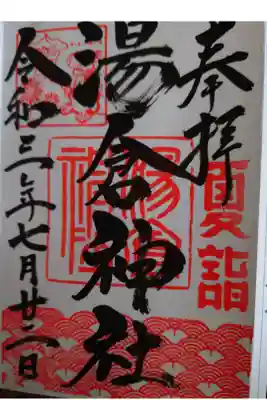 奉拝
夏詣
湯倉神社
令和三年七月廿二日